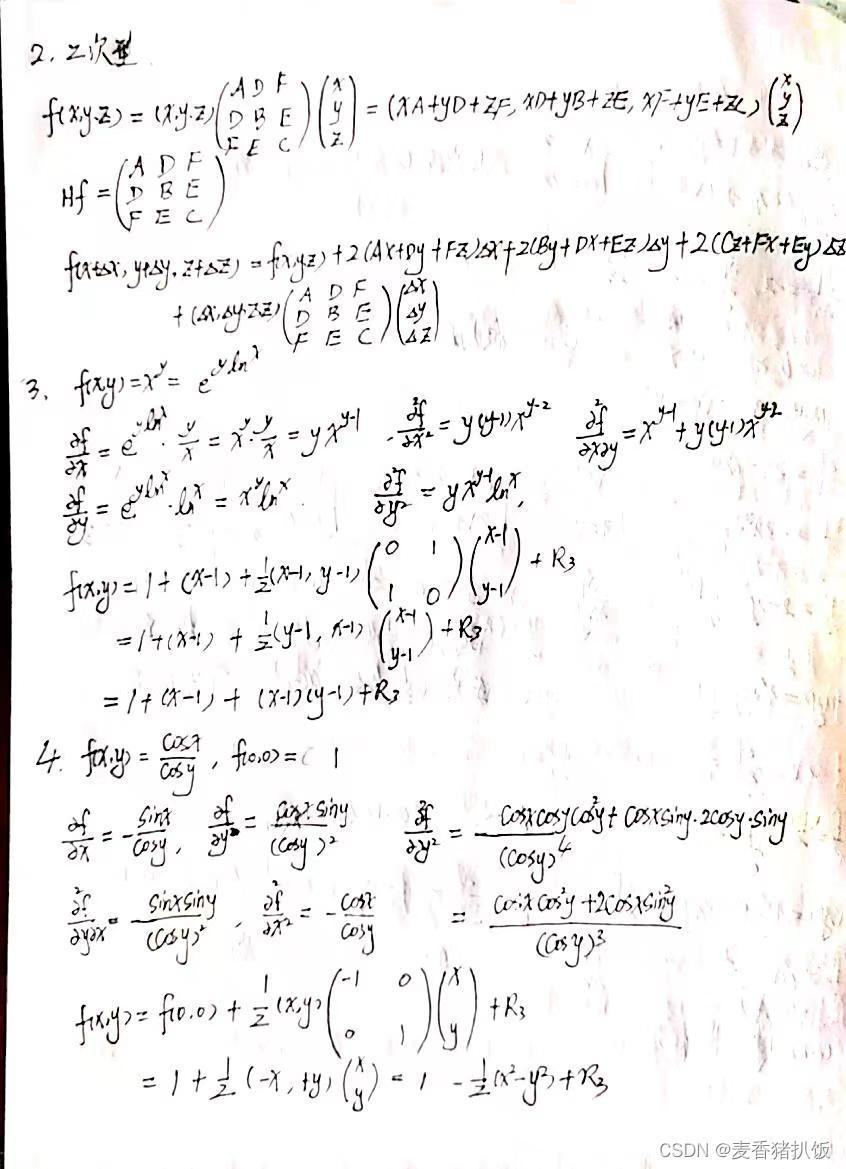 2. 二次型
f(x,y,z) = (x,y,z) (A D F; D B E; F E C) (x; y; z) = (xA+yD+zF, xD+yB+zE, xF+yE+zC) (x; y; z)
Hf = (A D F; D B E; F E C)
f(x+Δx, y+Δy, z+Δz) = f(x,y,z) + 2(Ax+Dy+Fz)Δx + 2(By+Dx+Ez)Δy + 2(Cz+Fx+Ey)Δz
+ (Δx,Δy,Δz) (A D F; D B E; F E C) (Δx; Δy; Δz)
3. f(x,y) = x^y = e^{y ln x}
∂f/∂x = e^{y ln x} · y/x = x^y · y/x = y x^{y-1} , ∂²f/∂x² = y(y-1)x^{y-2} ∂²f/∂x∂y = x^{y-1} + y(y-1)x^{y-2}
∂f/∂y = e^{y ln x} · ln x = x^y ln x . ∂²f/∂y² = y x^{y-1} ln x,
f(x,y) = 1 + (x-1) + 1/2 (x-1, y-1) (0 1; 1 0) (x-1; y-1) + R₃
= 1 + (x-1) + 1/2 (y-1, x-1) (x-1; y-1) + R₃
= 1 + (x-1) + (x-1)(y-1) + R₃
4. f(x,y) = cosx/cosy , f(0,0) = 1
∂f/∂x = - sinx/cosy , ∂f/∂y = cosx siny/(cosy)² ∂²f/∂y² = cosx cosy cos²y + cosx siny · 2cosy · siny/(cosy)⁴
∂²f/∂y∂x = - sinx siny/(cosy)² , ∂²f/∂x² = - cosx/cosy = cosx cos²y + 2cosx sin²y/(cosy)³
f(x,y) = f(0,0) + 1/2 (x,y) (-1 0; 0 1) (x; y) + R₃
= 1 + 1/2 (-x, +y) (x; y) = 1 - 1/2 (x²-y²) + R₃
CSDN @麦香猪扒饭